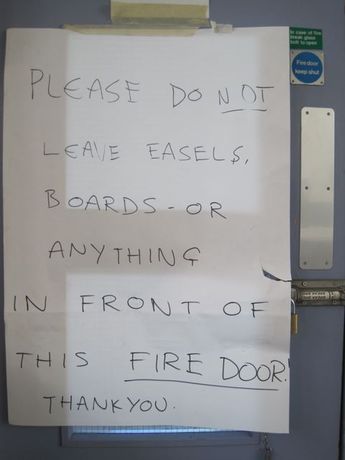 PLEASE DO NOT
LEAVE EASELS,
BOARDS - OR
ANYTHING
IN FRONT OF
THIS FIRE DOOR!
THANKYOU.
In case of fire
break glass
bolt to open
Fire door
keep shut